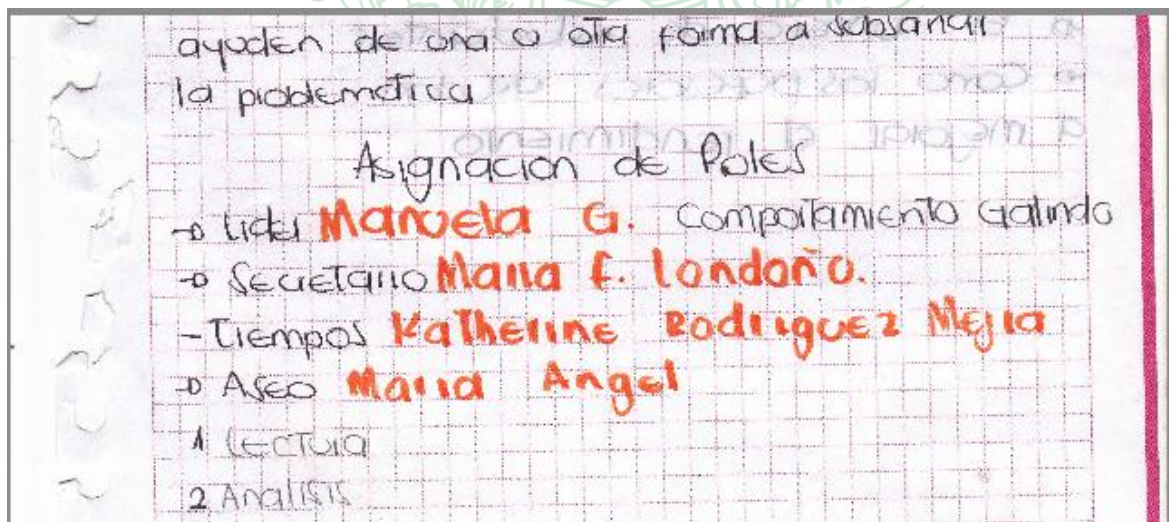 ayuden de una o otra forma a subsanar
la problemática
Asignacion de Roles
→ Lider Manuela G. comportamiento Galindo
→ Secretario Maria F. Londoño.
- Tiempos Katherine Rodriguez Mejia
→ Aseo Maria Angel
1 Lectura
2 Analisis